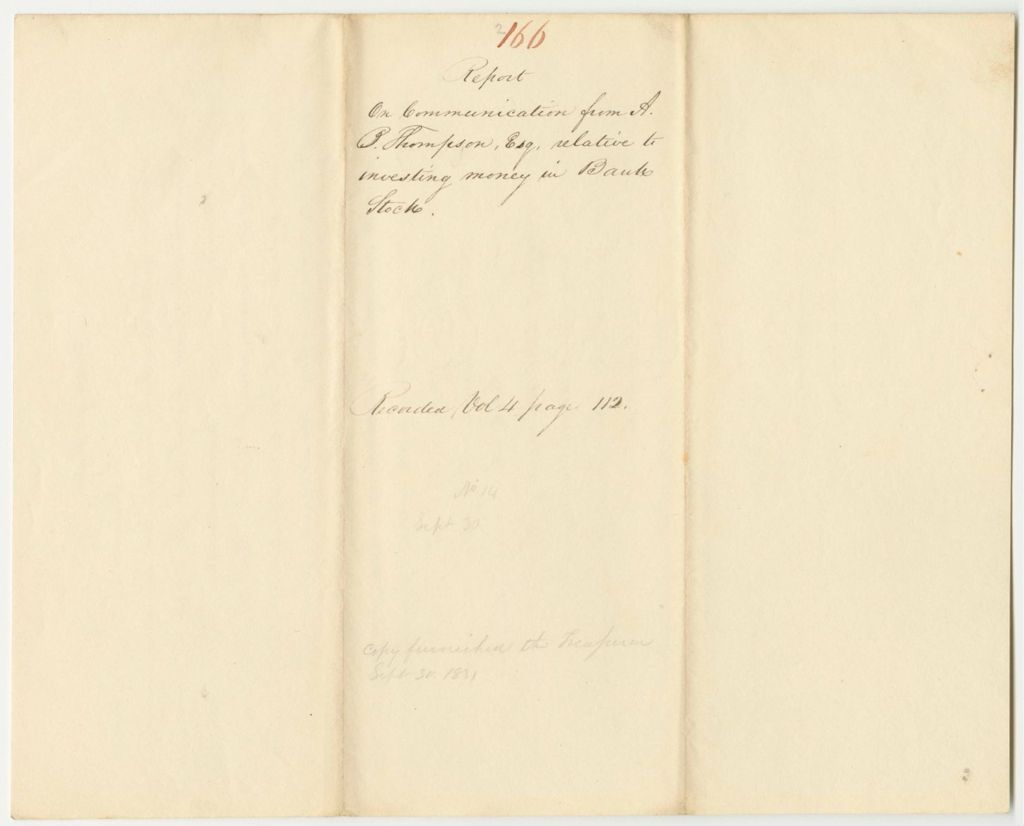 2 166
Report
On Communication from A.
P. Thompson, Esq. relative to
investing money in Bank
Stock.
Recorded, Vol 4 page 112.
No 14
Sept 30
Copy furnished the Treasurer
Sept 30. 1831